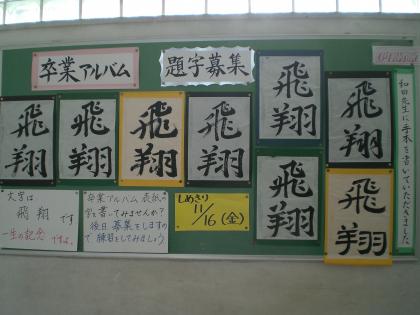 卒業アルバム
題字募集
飛翔
飛翔
飛翔
飛翔
飛翔
飛翔
飛翔
飛翔
文字は
飛翔です
一生の記念ですよ。
卒業アルバム表紙の
字を書いてみませんか？
後日募集をしますの
で練習をしてみましょう
しめきり
11/16(金)
和田先生に手本を書いていただきました